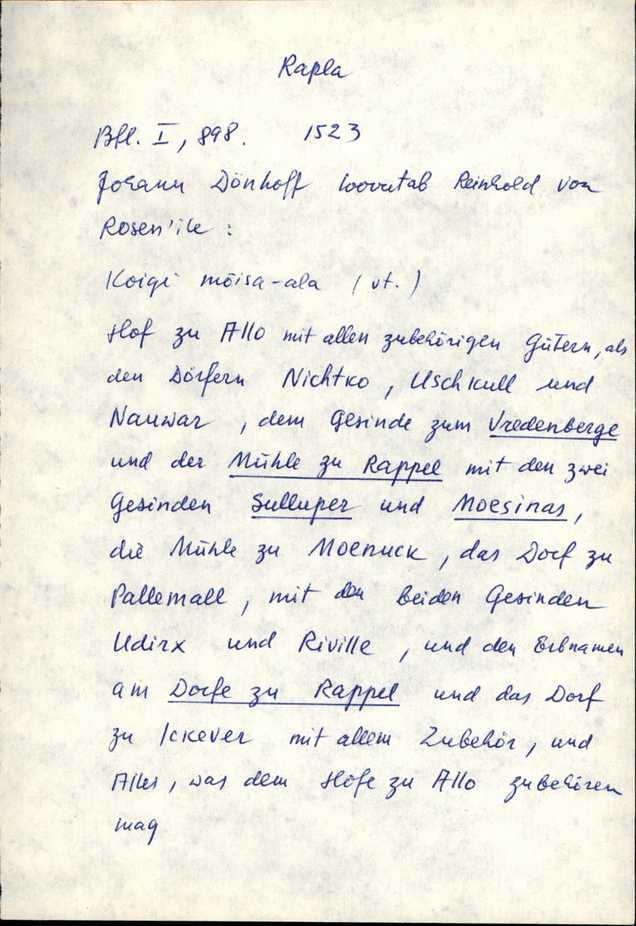 Rapla
Bfl. I, 898. 1523
Johann Dönhoff loovutab Reinhold von
Rosen'ile :
Koigi mõisa-ala (vt.)
Hof zu Allo mit allen zubehörigen Gütern, als
den Dörfern Nichtko, Uschkull und
Nauwar, dem Gesinde zum Vredenberge
und der Mühle zu Rappel mit den zwei
Gesinden Sulluper und Moesinas,
die Mühle zu Moenuck, das Dorf zu
Pallemall, mit den beiden Gesinden
Udirx und Riville, und den Erbnamen
am Dorfe zu Rappel und das Dorf
zu Ickever mit allem Zubehör, und
Alles, was dem Hofe zu Allo zubehören
mag